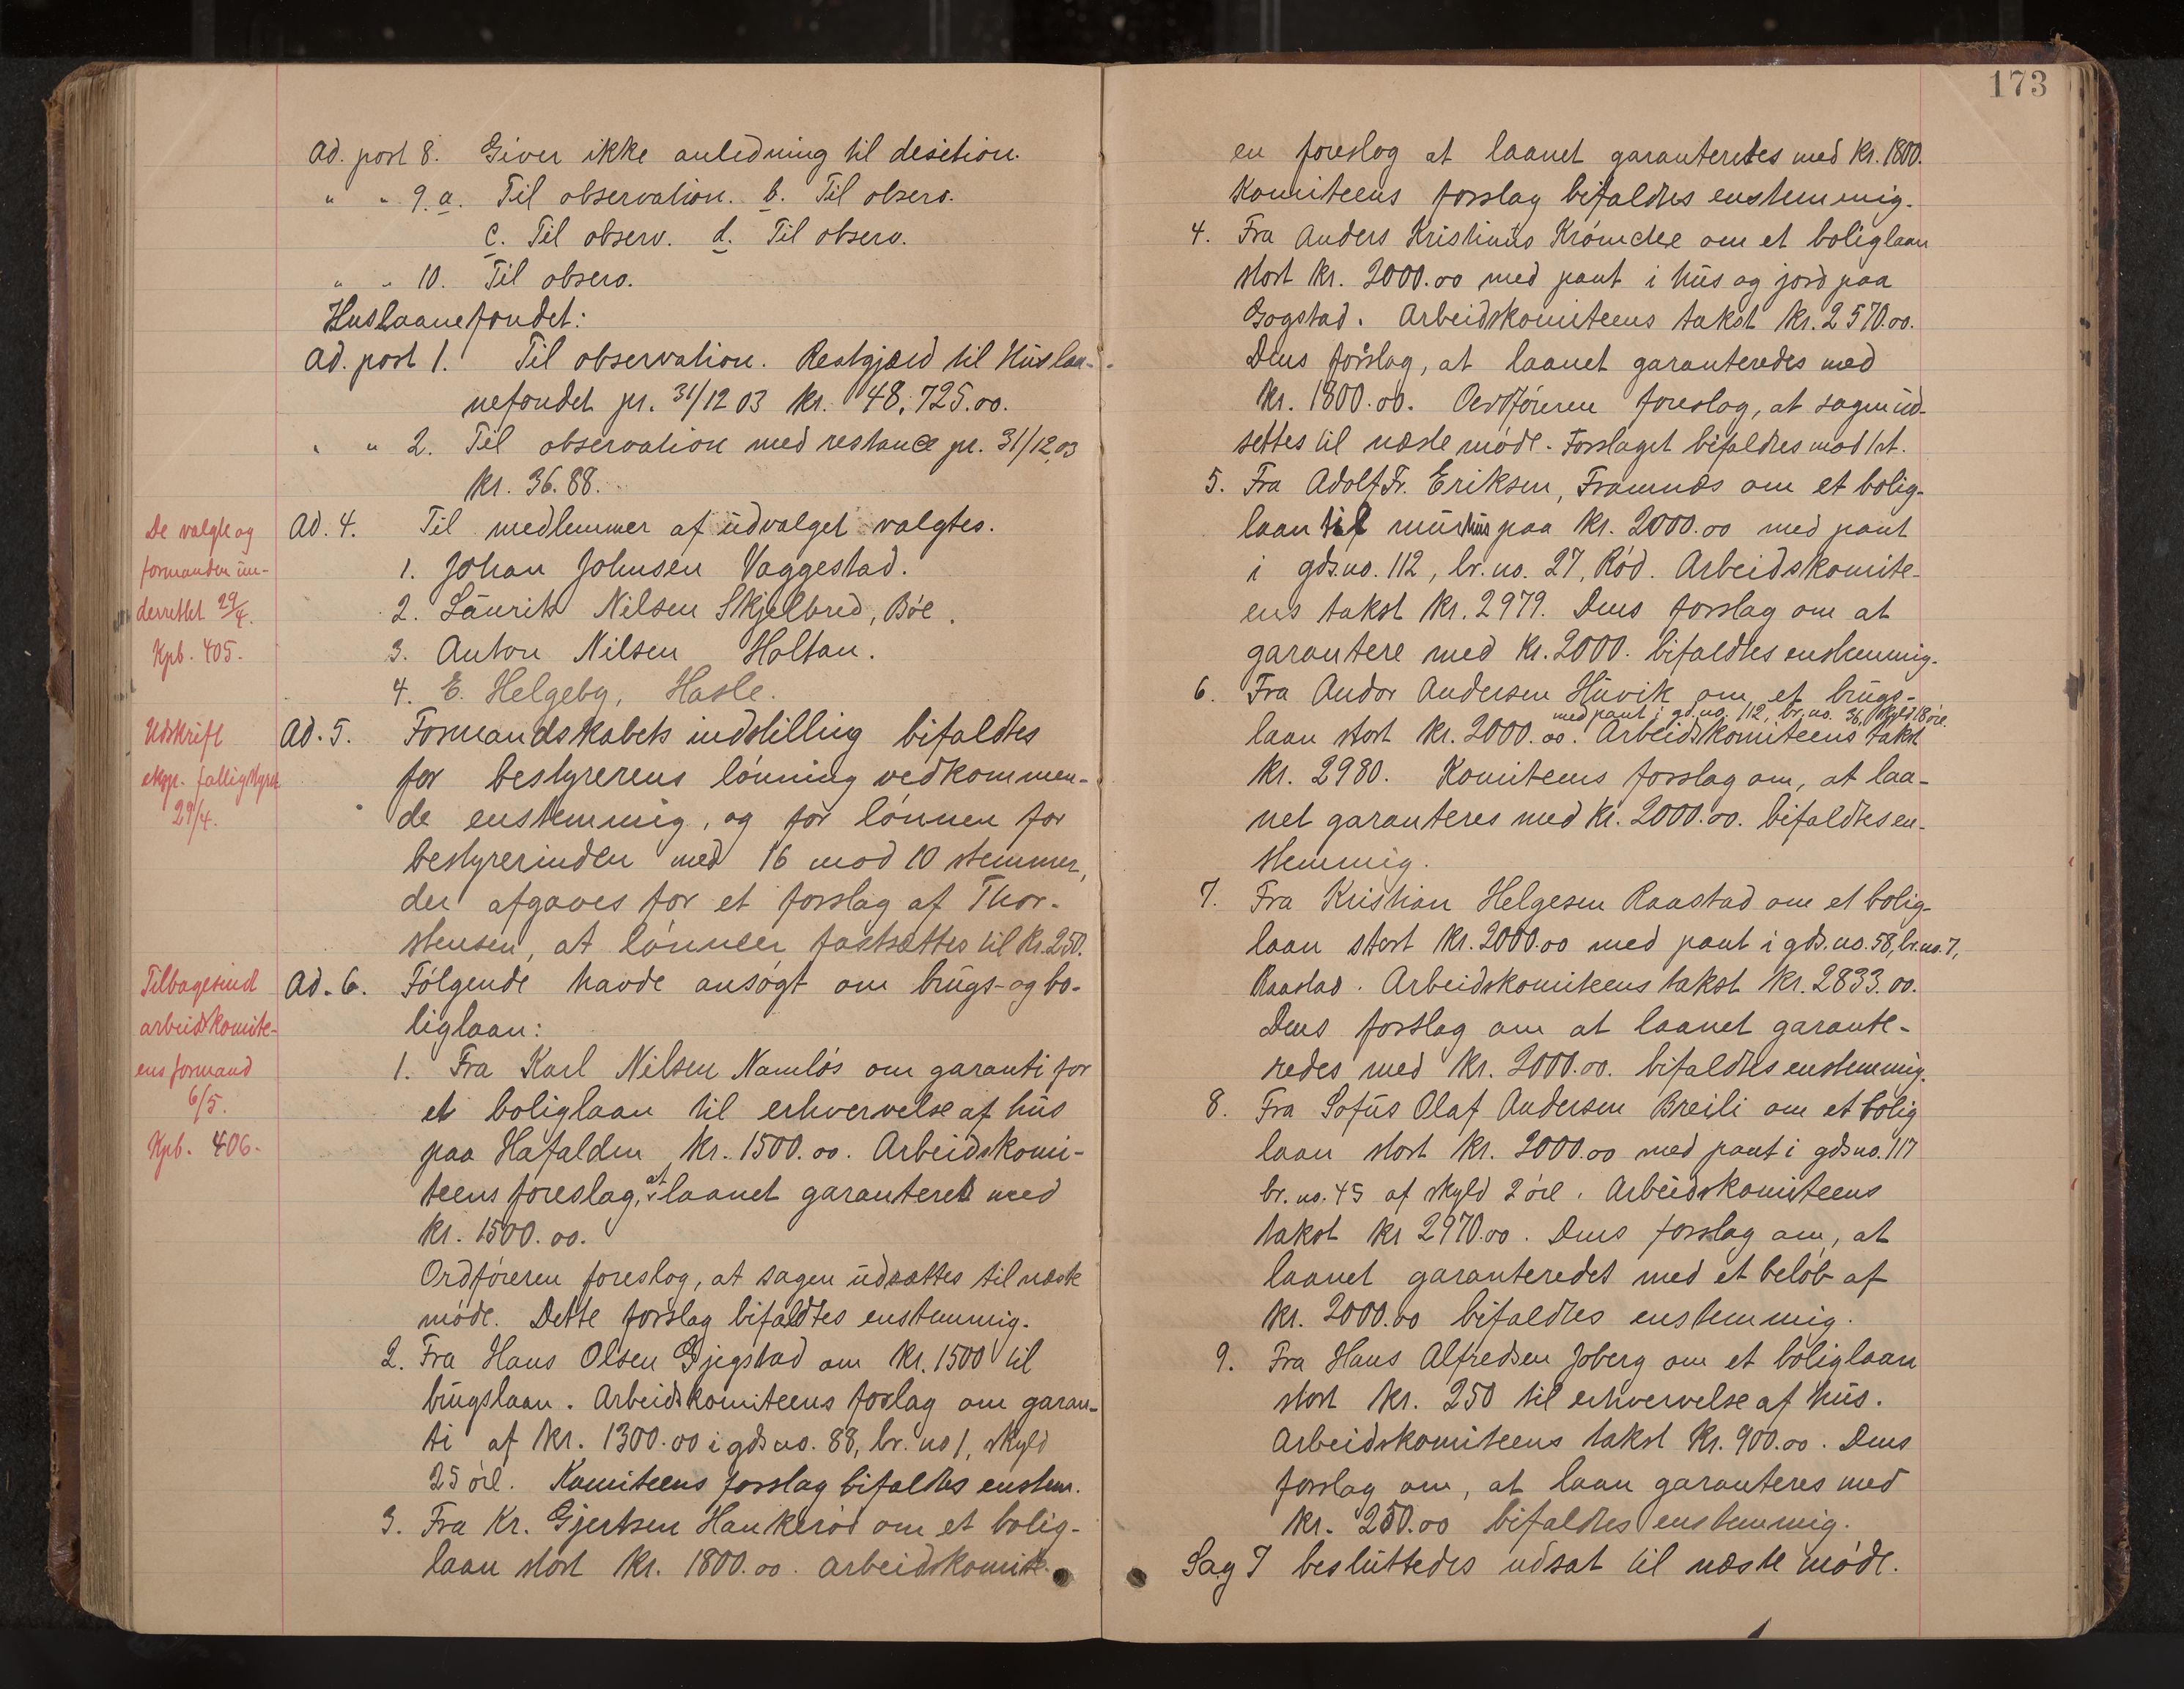 Ad. post 8. Giver ikke anledning til desition.
" " 9. a. Til observation. b. Til observ.
c. Til observ. d. Til observ.
" " 10. Til observ.
Huslaanefondet:
Ad. post 1. Til observation. Restgjæld til Huslaa-
nefondet pr. 31/12 03 kr. 48.725.00.
" " 2. Til observation med restance pr. 31/12 03
kr. 36.88.
De valgte og
formanden un-
derrettet 29/4.
Kpb. 405.
Ad. 4. Til medlemmer af udvalget valgtes.
1. Johan Johnsen Vaggestad.
2. Laurits Nilsen Skjelbred, Bøe.
3. Anton Nilsen Holtan.
4. E. Helgeby, Hasle.
Udskrift
eksp. fattigstyret
29/4.
Ad. 5. Formandskabets indstilling bifaldtes
for bestyrerens lønning vedkommen-
de enstemmig, og for lønnen for
bestyrerinden med 16 mod 10 stemmer,
der afgaves for et forslag af Thor-
stensen, at lønnen fastsættes til kr. 250.
Tilbagesend
arbeidskomite-
ens formand
6/5.
Kpb. 406.
Ad. 6. Følgende havde ansøgt om brugs- og bo-
liglaan:
1. Fra Karl Nilsen Namløs om garanti for
et boliglaan til erhvervelse af hus
paa Hafalden kr. 1500.00. Arbeidskomi-
teens foreslag, at laanet garanteret med
kr. 1500.00.
Ordføreren foreslog, at sagen udsættes til næste
møde. Dette forslag bifaldtes enstemmig.
2. Fra Hans Olsen Gjegstad om kr. 1500 til
brugslaan. Arbeidskomiteens forslag om garan-
ti af kr. 1300.00 i gdsno. 88, br. no 1, skyld
25 øre. Komiteens forslag bifaldtes enstem.
3. Fra Kr. Gjertsen Haukerød om et bolig-
laan stort kr. 1800.00. Arbeidskomite-
173
en foreslog at laanet garanteredes med kr. 1800.
Komiteens forslag bifaldtes enstemmig.
4. Fra Anders Kristinius om et boliglaan
stort kr. 2000.00 med pant i hus og jord paa
Gogstad. Arbeidskomiteens takst kr. 2570.00.
Dens forslag, at laanet garanteredes med
kr. 1800.00. Ordføreren foreslog, at sagen ud-
settes til næste møde. Forslaget bifaldtes mod 1 st.
5. Fra Adolf Fr. Eriksen, Framnæs om et bolig-
laan til murhus paa kr. 2000.00 med pant
i gds.no. 112, br.no. 27, Rød. Arbeidskomite-
ens takst kr. 2979. Dens forslag om at
garantere med kr. 2000. bifaldtes enstemmig.
6. Fra Andor Andersen Huvik om et brugs-
med pant i gd.no. 112, br.no. 36, skyld 18 øre.
laan stort kr. 2000.00. Arbeidskomiteens takst
kr. 2980. Komiteens forslag om, at laa-
net garanteres med kr. 2000.00. bifaldtes en-
stemmig.
7. Fra Kristian Helgesen Raastad om et bolig-
laan stort kr. 2000.00 med pant i gds.no. 58, br.no. 7,
Raastad. Arbeidskomiteens takst kr. 2833.00.
Dens forslag om at laanet garante-
redes med kr. 2000.00. bifaldtes enstemmig.
8. Fra Sofus Olaf Andersen Breili om et bolig
laan stort kr. 2000.00 med pant i gdsno. 117
br. no. 45 af skyld 2 øre. Arbeidskomiteens
takst kr 2970.00. Dens forslag om, at
laanet garanteredet med et beløb af
kr. 2000.00 bifaldtes enstemmig.
9. Fra Hans Alfredsen Joberg om et boliglaan
stort kr. 250 til erhvervelse af hus.
Arbeidskomiteens takst kr. 900.00. Dens
forslag om, at laan garanteres med
kr. 250.00 bifaldtes enstemmig.
Sag 7 besluttedes udsat til næste møde.